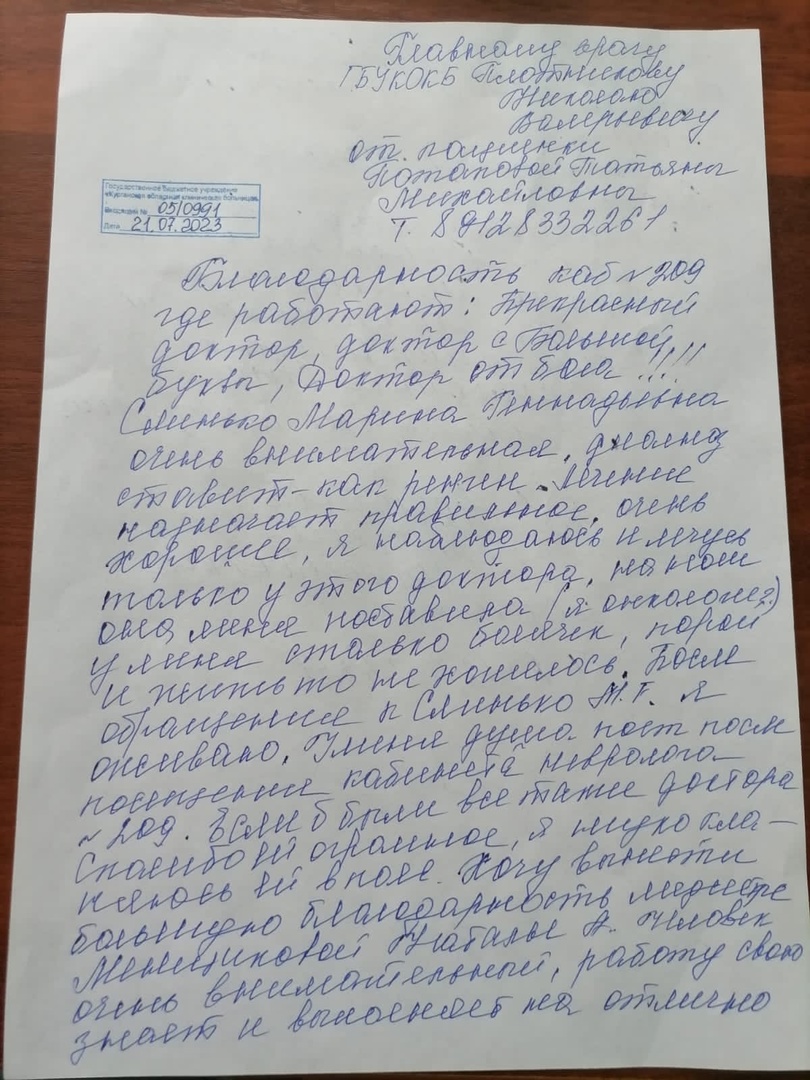 Главному врачу
ГБУКОКБ Плотникову
Николаю
Валерьевичу
от. пациентки
Потаповой Татьяны
Михайловны
т. 89128332261
Государственное бюджетное учреждение
«Курганская областная клиническая больница»
Входящий № 05/0991
Дата 21.07.2023
Благодарность каб №209
где работают: Прекрасный
доктор, доктор с Большой
буквы, Доктор от бога!!!!
Слинько Марина Геннадьевна
очень внимательная, диагноз
ставит – как рентген. Лечение
назначает правильное, очень
хорошее, я наблюдаюсь и лечусь
только у этого доктора, на ноги
она меня поставила (я онколог.)
у меня столько болячек, порой
и жить то не хотелось. После
обращение к Слинько М.Г. я
оживаю. У меня душа поёт после
посещение кабинета невролога
№ 209. Если б были все такие доктора
Спасибо ей огромное, я низко кла–
няюсь ей в пояс. Хочу вынести
большую благодарность медсестре
Менщиковой Наталье А. Человек
очень внимательный, работу свою
знает и выполняет на отлично